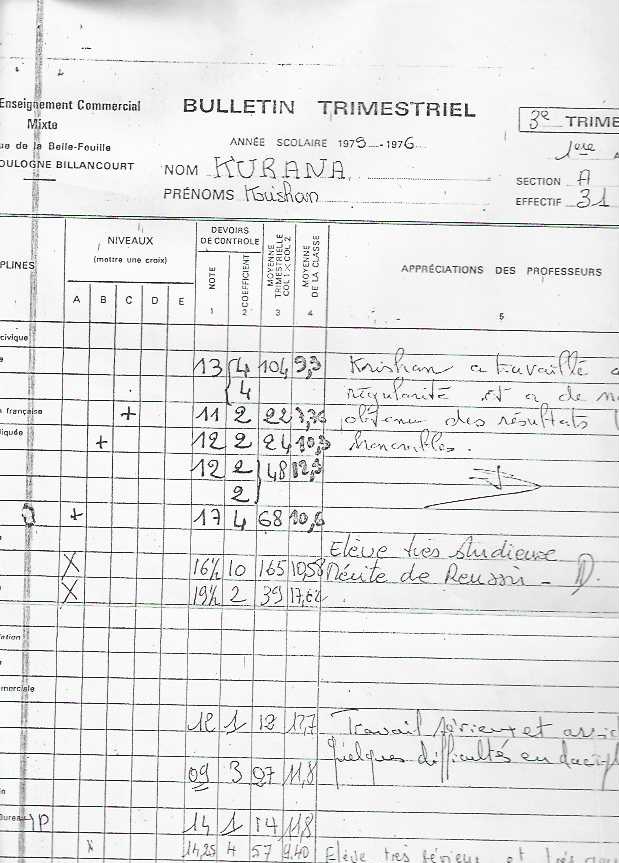 Enseignement Commercial
Mixte
ue de la Belle-Feuille
OULOGNE BILLANCOURT
BULLETIN TRIMESTRIEL
ANNÉE SCOLAIRE 1975-1976
NOM KURANA
PRÉNOMS Krishan
3e TRIME
1ere A
SECTION A
EFFECTIF 31
PLINES
NIVEAUX
(mettre une croix)
A B C D E
DEVOIRS DE CONTROLE
NOTE 1
COEFFICIENT 2
MOYENNE TRIMESTRIELLE COL 1 X COL 2 3
MOYENNE DE LA CLASSE 4
APPRÉCIATIONS DES PROFESSEURS
5
civique
13 4 104 9,9 Krishan a travaillé
4 régularité et a de
française + 11 2 22 obtenu des résultats
liquée + 12 2 24 10,9 honorables.
12 2 48
2
+ 17 4 68 10,6
Elève très studieuse
X 16½ 10 165 10,58 Mérite de Reussir -
X 19½ 2 39 17,62
tation
merciale
12 1 12 12,7 Travail sérieux et
quelques difficultés en
09 3 27 11,8
Bureau
14 1 14 11,8
x 14,25 4 57 9,40 Elève très sérieux et très